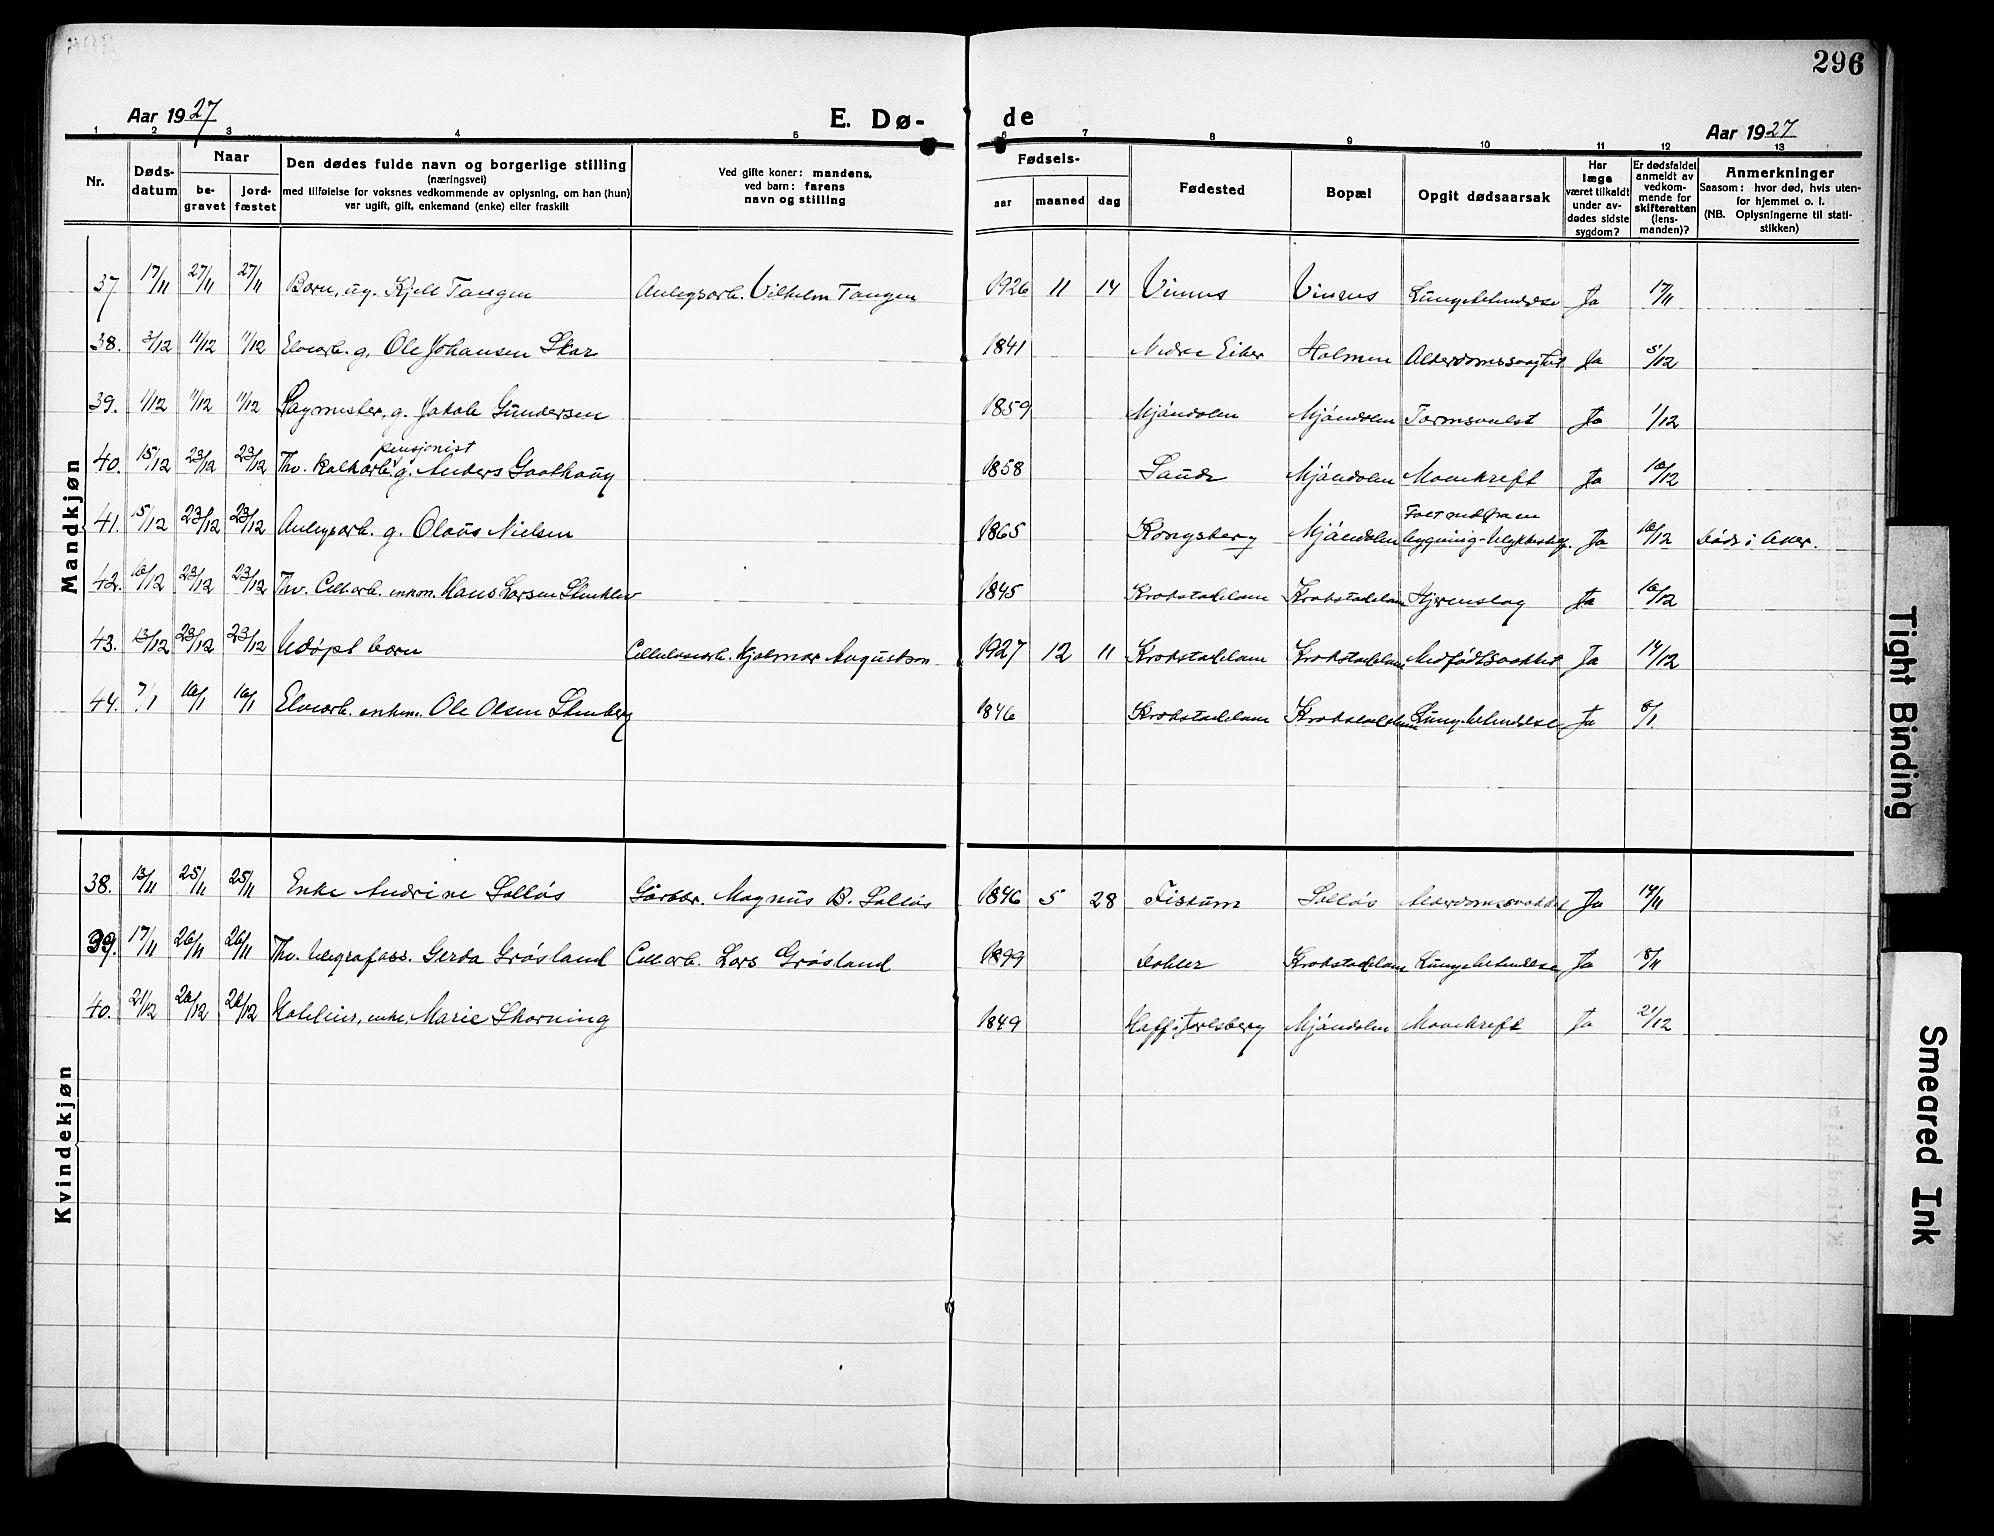 296
Aar 1927
E. Dø-
de
Aar 1927
1 2 3 4 5 6 7 8 9 10 11 12 13
Nr.
Døds-
datum
Naar
be-
gravet
jord-
fæstet
Den dødes fulde navn og borgerlige stilling
(næringsvei)
med tilføielse for voksnes vedkommende av oplysning, om han (hun)
var ugift, gift, enkemand (enke) eller fraskilt
Ved gifte koner: mandens,
ved barn: farens
navn og stilling
Fødsels-
aar maaned dag
Fødested
Bopæl
Opgit dødsaarsak
Har
læge
været tilkaldt
under av-
dødes sidste
sygdom?
Er dødsfaldet
anmeldt av
vedkom-
mende for
skifteretten
(lens-
manden)?
Anmerkninger
Saasom: hvor død, hvis uten-
for hjemmet o. l.
(NB. Oplysningerne til stati-
stikken)
Mandkjøn
37 17/11 27/11 27/11 Barn, ug. Kjell Tangen Anlegsarb. Vilhelm Tangen 1926 11 14 Vinnes Vinnes Lungebetendelse Ja 17/11
38. 3/12 11/12 11/12 Elvearb. g. Ole Johansen Skar 1841 Nedre Eiker Holmen Alderdomssvaghet Ja 5/12
39. 1/12 11/12 11/12 Sagmester. g. Jakob Gundersen 1859 Mjøndalen Mjøndalen Tarmsvulst Ja 1/12
pensjonist
40. 15/12 23/12 23/12 Fhv. kalkarb. g. Anders Gaathaug 1858 Saude Mjøndalen Mavekreft Ja 16/12
41. 15/12 23/12 23/12 Anlegsarb. g. Olaus Nielsen 1865 Kongsberg Mjøndalen Ja 16/12 døde i Aker.
42. 16/12 23/12 23/12 Fhv. Cell.arb. enkem. Hans Larsen 1845 Krokstadelven Krokstadelven Hjerneslag Ja 16/12
43. 13/12 23/12 23/12 Udøpt barn Cellulosearb. Hjalmar Augustson 1927 12 11 Krokstadelven Krokstadelven Medfødt svakhet Ja 14/12
44. 7/1 16/1 16/1 Elvearb. enkem. Ole Olsen Stenberg 1846 Krokstadelven Krokstadelven Lungebetendelse Ja 8/1
Kvindekjøn
38. 13/11 25/11 25/11 Enke Andrine Solløs Gårbr. Magnus B. Solløs 1846 5 28 Fiskum Solløs Alderdomssvakhet Ja 14/11
39. 17/11 26/11 26/11 Fhv. telegrafass. Gerda Grøsland Cell.arb. Lars Grøsland 1899 Krokstadelven Lungebetendelse Ja 18/11
40. 21/12 28/12 28/12 enke, Marie Skorning 1849 Jarlsberg Mjøndalen Mavekreft Ja 21/12
Tight Binding
Smeared Ink